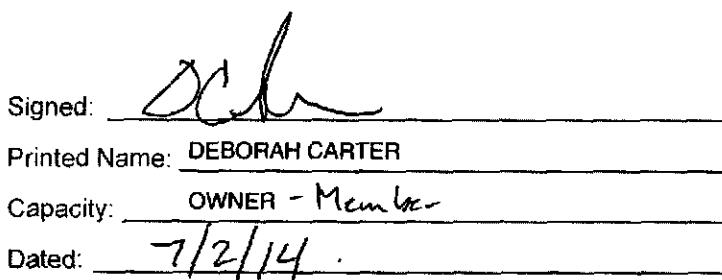 Signed:
Printed Name: DEBORAH CARTER
Capacity: OWNER - Member
Dated: 7/2/14